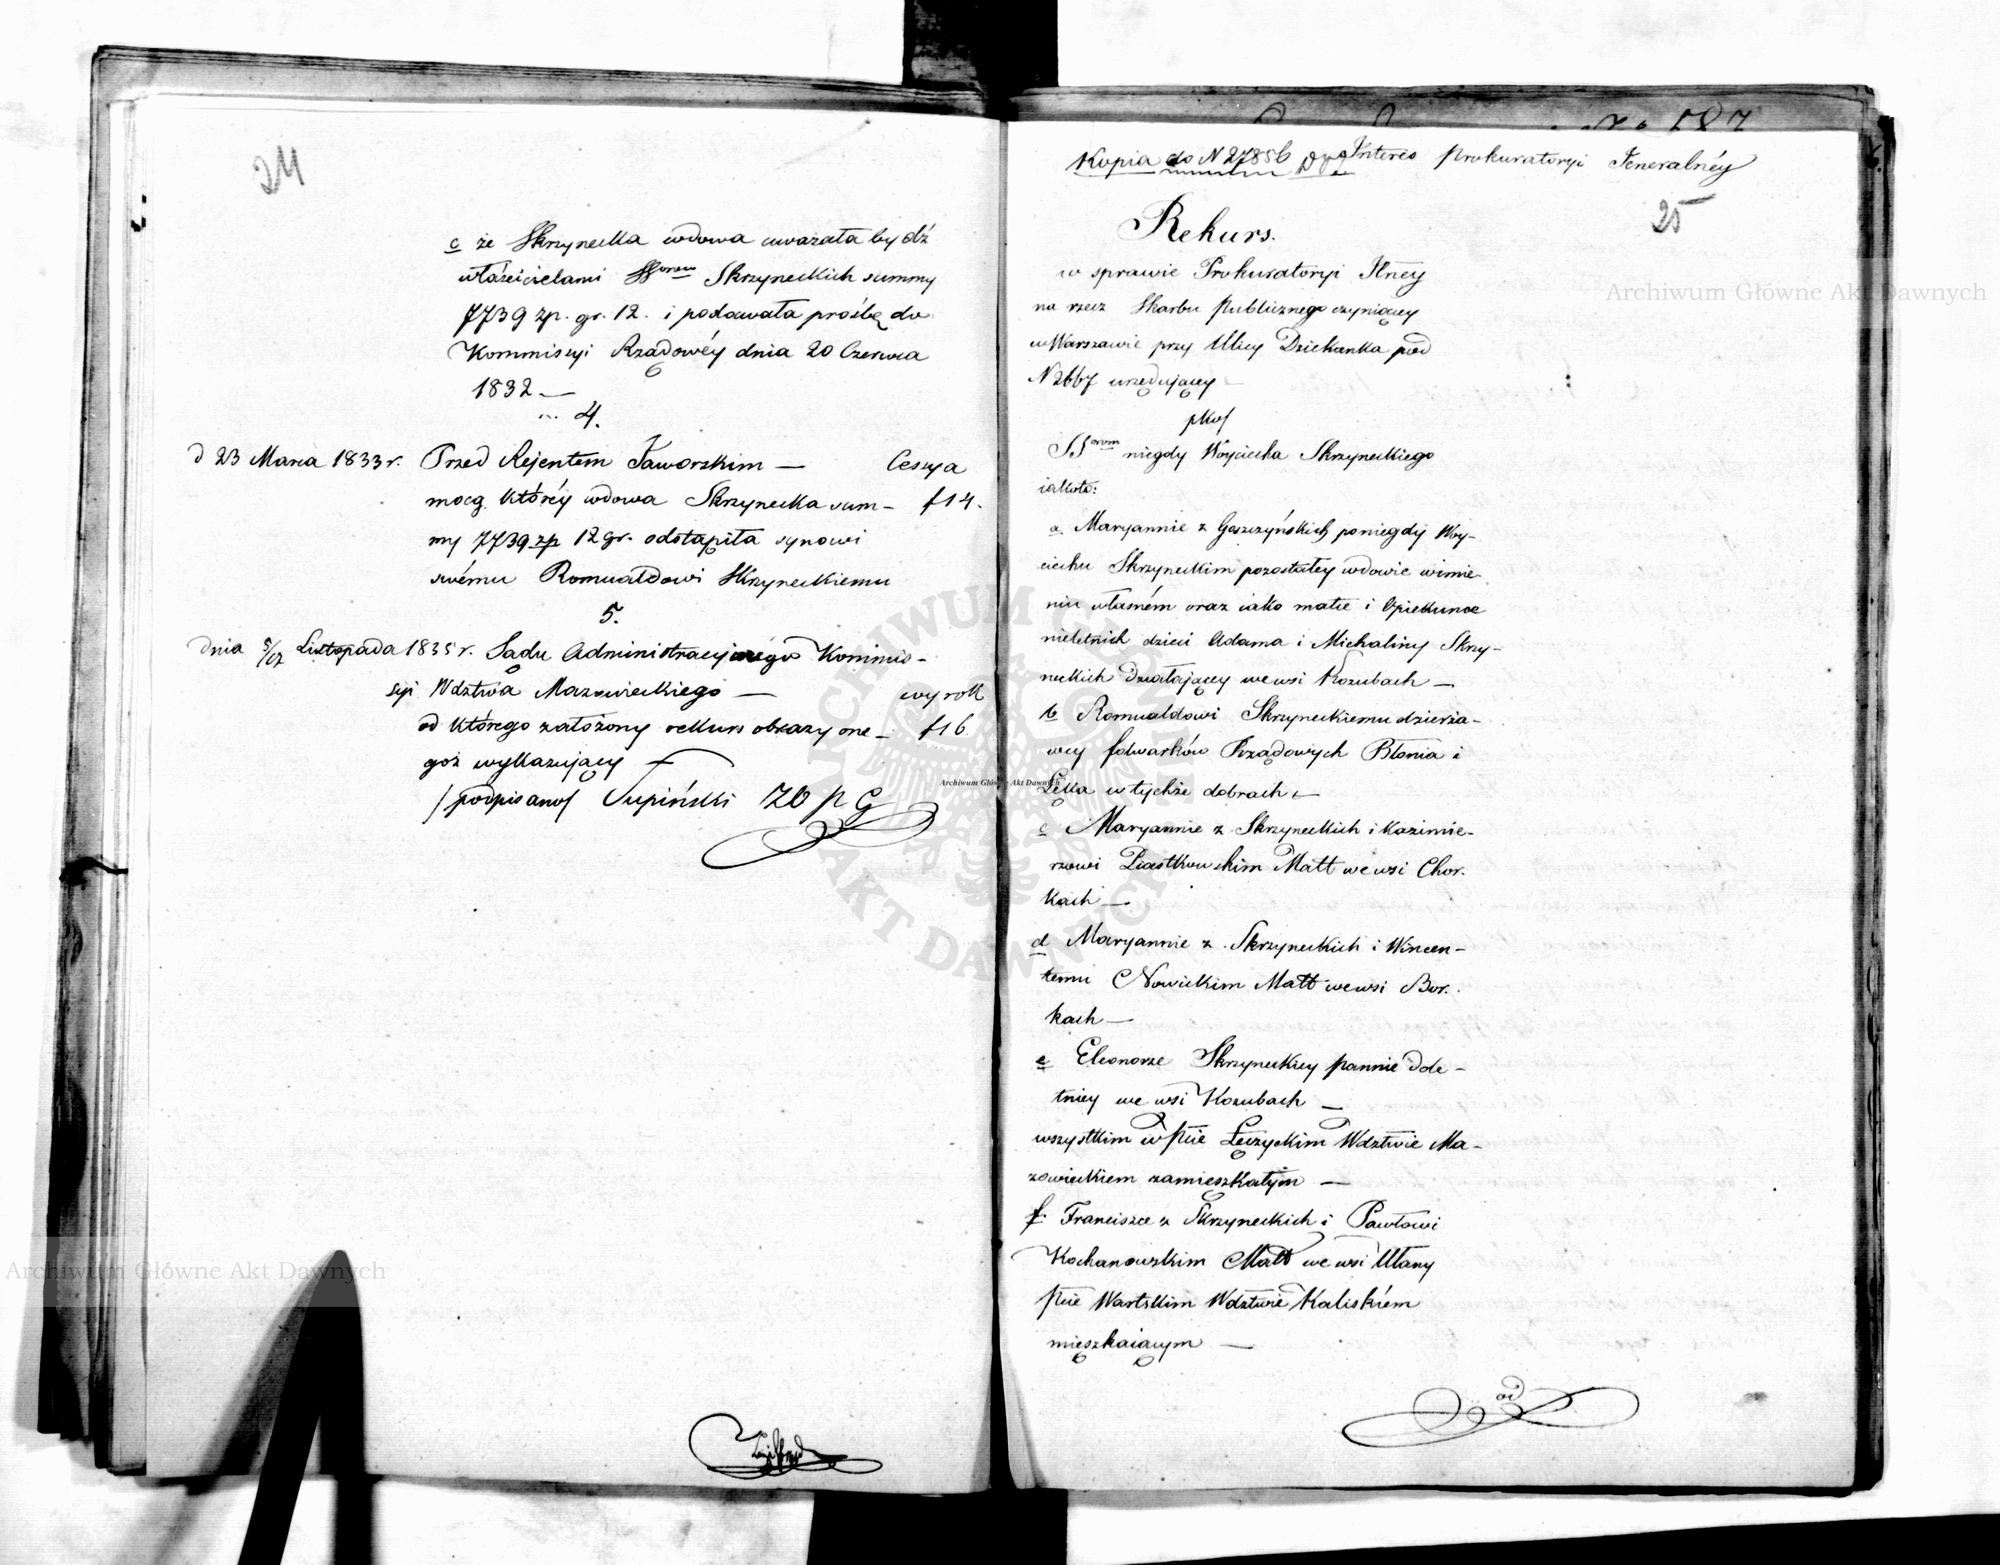 24
c że Skrzynecka wdowa uważała bydź
właścicielami SSorow Skrzyneckich summy
7739 zp. gr. 12. i podawała prośbę do
Kommissyi Rządowéy dnia 20 Czerwca
1832 —
4.
d 23 Marca 1833 r. Przed Rejentem Jaworskim — Cessya
mocą któréy wdowa Skrzynecka sum- f 14.
my 7739 zp 12 gr. odstąpiła synowi
swému Romualdowi Skrzyneckiemu
5.
dnia 5/17 Listopada 1835 r. Sądu Administracyjnego Kommis-
syi Wdztwa Mazowieckiego — wyrok
od którego założony rekurs obrazy one- f 16
goż wykazujący —
/podpisano/ Łupiński
Kopia do N 27856 Interes Prokuratoryi Jeneralnéy
25
Rekurs.
w sprawie Prokuratoryi Jlnéy
na rzecz Skarbu Publicznego czyniący
w Warszawie przy Ulicy Dziekanka pod
N 2667 urzędujący —
pko/
SSorom niegdy Woyciecha Skrzyneckiego
iakoto:
a Maryannie z Goszczyńskich poniegdy Woy-
ciechu Skrzyneckim pozostałey wdowie wimie-
niu własném oraz iako matce i Opiekunce
nieletnich dzieci Adama i Michaliny Skrzy-
neckich Działającey we wsi Kozubach —
b Romualdowi Skrzyneckiemu dzierża-
wcy folwarków Rządowych Błonia i
Łęka w tychże dobrach —
c Maryannie z Skrzyneckich i Kazimie-
rzowi Piastkowskim Małż we wsi Chor-
kach —
d Maryannie z Skrzyneckich i Wincen-
temu Nowickim Małż we wsi Bor-
kach —
e Eleonorze Skrzyneckiey pannie dole-
tniey we wsi Kozubach —
wszystkim w Pcie Łęczyckim Wdztwie Ma-
zowieckiem zamieszkałym —
f. Franciszce z Skrzyneckich i Pawłowi
Kochanowskim Małż we wsi Ułany
Pcie Wartskim Wdztwie Kaliskiém
mieszkaiącym —
od
Archiwum Główne Akt Dawnych
Archiwum Główne Akt Dawnych
Archiwum Główne Akt Dawnych
ARCHIWUM GŁÓWNE AKT DAWNYCH